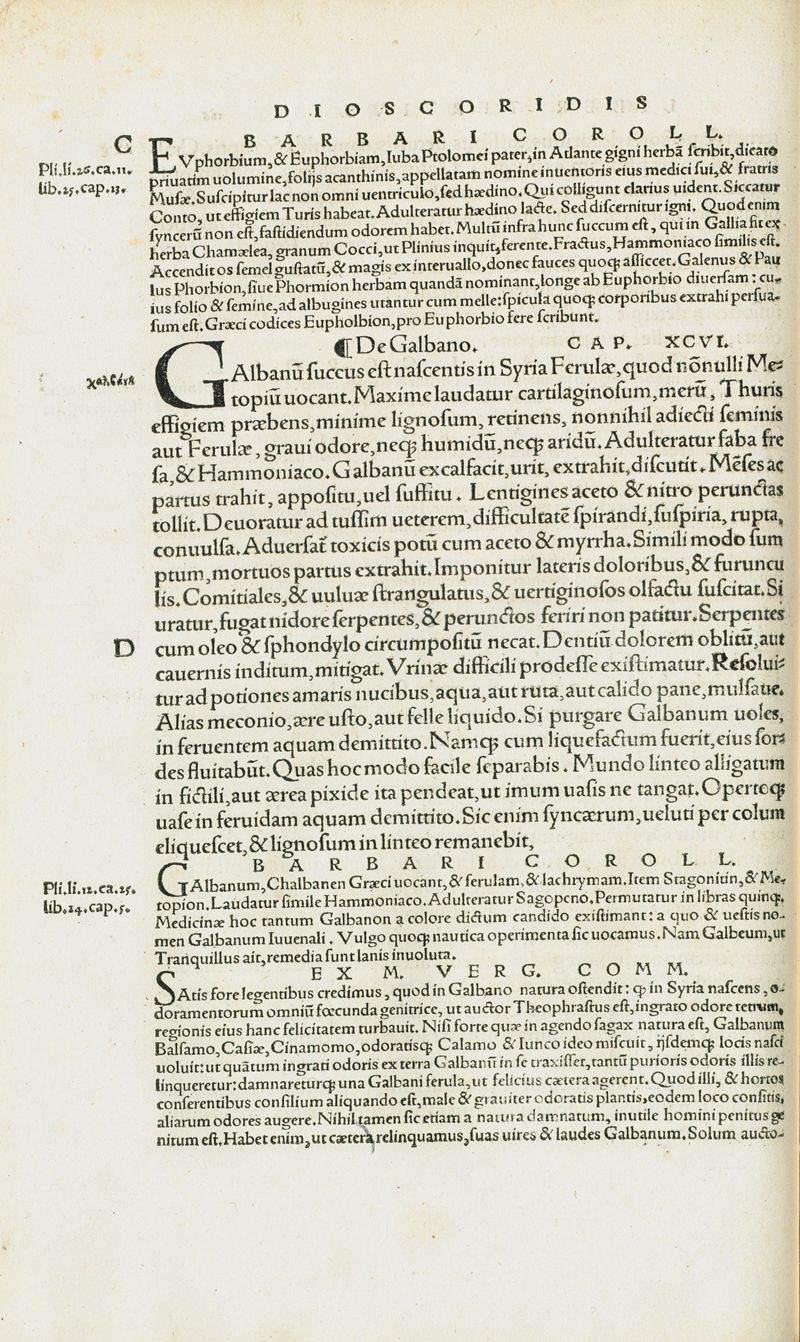 DIOSCORIDIS
C BARBARI COROLL.
Pli.li.26.ca.11.
lib.25.cap.13.
EVphorbium,& Euphorbiam,Iuba Ptolomei pater,in Atlante gigni herbã ſcribit,dicato
priuatim uolumine,folijs acanthinis,appellatam nomine inuentoris eius medici ſui,& fratris
Muſæ.Suſcipitur lac non omni uentriculo,ſed hædino.Qui colligunt clarius uident.Siccatur
Conto,ut effigiem Turis habeat.Adulteratur hædino lacte. Sed diſcernitur igni. Quod enim
ſyncerũ non eſt,faſtidiendum odorem habet.Multũ infra hunc ſuccum eſt, qui in Gallia fit ex
herba Chamælea, granum Cocci,ut Plinius inquit,ferente.Fractus,Hammoniaco ſimilis eſt.
Accendit os ſemel guſtatũ,& magis ex interuallo,donec fauces quoqꝫ aſſiccet.Galenus & Pau
lus Phorbion,ſiue Phormion herbam quandã nominant,longe ab Euphorbio diuerſam: cu-
ius folio & ſemine,ad albugines utantur cum melle:ſpicula quoqꝫ corporibus extrahi perſua-
ſum eſt.Græci codices Eupholbion,pro Euphorbio fere ſcribunt.
¶De Galbano. CAP. XCVI.
GAlbanũ ſuccus eſt naſcentis in Syria Ferulæ,quod nõnulli Me-
topiũ uocant.Maxime laudatur cartilaginoſum,merũ, Thuris
effigiem præbens,minime lignoſum, retinens, nonnihil adiecti ſeminis
aut Ferulæ, graui odore,neqꝫ humidũ,neqꝫ aridũ.Adulteratur faba fre
ſa,& Hammoniaco.Galbanũ excalfacit,urit, extrahit,diſcutit. Mẽſes ac
partus trahit, appoſitu,uel ſuffitu. Lentigines aceto & nitro perunctas
tollit.Deuoratur ad tuſſim ueterem,difficultatẽ ſpirandi,ſuſpiria, rupta,
conuulſa.Aduerſat᷑ toxicis potũ cum aceto & myrrha.Simili modo ſum
ptum,mortuos partus extrahit.Imponitur lateris doloribus,& furuncu
lis.Comitiales,& uuluæ ſtrangulatus,& uertiginoſos olfactu ſuſcitat.Si
uratur,fugat nidore ſerpentes,& perunctos feriri non patitur.Serpentes
D cum oleo & ſphondylo circumpoſitũ necat.Dentiũ dolorem oblitũ,aut
cauernis inditum,mitigat.Vrinæ difficili prodeſſe exiſtimatur.Reſolui-
tur ad potiones amaris nucibus,aqua,aut ruta,aut calido pane,mulſaue.
Alias meconio,ære uſto,aut felle liquido.Si purgare Galbanum uoles,
in feruentem aquam demittito.Namqꝫ cum liquefactum fuerit,eius ſor-
des fluitabũt.Quas hoc modo facile ſeparabis. Mundo linteo alligatum
in fictili,aut ærea pixide ita pendeat,ut imum uaſis ne tangat.Opertoqꝫ
uaſe in feruidam aquam demittito.Sic enim ſyncærum,ueluti per colum
eliqueſcet,& lignoſum in linteo remanebit,
BARBARI COROLL.
Pli.li.12.ca.25.
lib.24.cap.5.
GAlbanum,Chalbanen Græci uocant,& ferulam,& lachrymam.Item Stagonitin,& Me-
topion.Laudatur ſimile Hammoniaco.Adulteratur Sagopeno.Permutatur in libras quinqꝫ.
Medicinæ hoc tantum Galbanon a colore dictum candido exiſtimant: a quo & ueſtis no-
men Galbanum Iuuenali. Vulgo quoqꝫ nautica operimenta ſic uocamus. Nam Galbeum,ut
Tranquillus ait,remedia ſunt lanis inuoluta.
EX M. VERG. COMM.
SAtis fore legentibus credimus, quod in Galbano natura oſtendit: ꝙ in Syria naſcens, o-
doramentorum omniũ fœcunda genitrice, ut auctor Theophraſtus eſt,ingrato odore tetrum,
regionis eius hanc felicitatem turbauit. Niſi forte quæ in agendo ſagax natura eſt, Galbanum
Balſamo,Caſiæ,Cinamomo,odoratisqꝫ Calamo & Iunco ideo miſcuit, ijſdemqꝫ locis naſci
uoluit:ut quãtum ingrati odoris ex terra Galbanũ in ſe traxiſſet,tantũ purioris odoris illis re-
linqueretur:damnareturqꝫ una Galbani ferula,ut felicius cætera agerent.Quod illi, & hortos
conſerentibus conſilium aliquando eſt,male & grauiter odoratis plantis,eodem loco conſitis,
aliarum odores augere.Nihil tamen ſic etiam a natura damnatum, inutile homini penitus ge
nitum eſt.Habet enim,ut cætera relinquamus,ſuas uires & laudes Galbanum.Solum aucto-